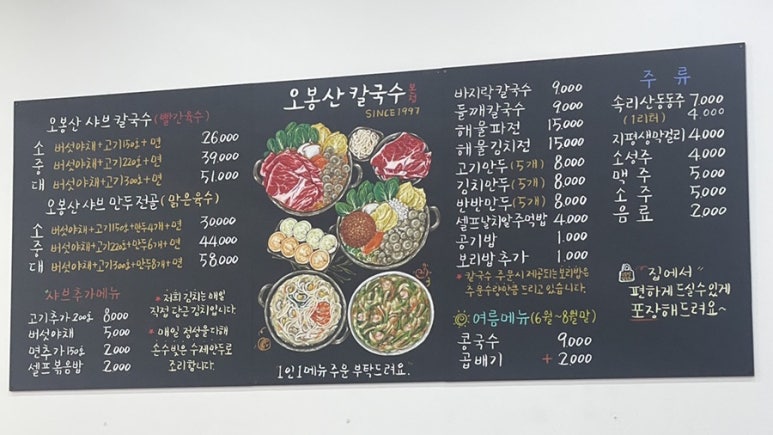 오봉산 샤브 칼국수 (빨간육수)
소 버섯야채+고기150g+면 26,000
중 버섯야채+고기220g+면 39,000
대 버섯야채+고기300g+면 51,000
오봉산 샤브 만두전골 (맑은육수)
소 버섯야채+고기150g+만두4개+면 30000
중 버섯야채+고기220g+만두6개+면 44,000
대 버섯야채+고기300g+만두8개+면 58,000
샤브추가메뉴
고기추가 200g 8000
버섯야채 5000
면추가 150g 2000
셀프볶음밥 2000
* 저희 김치는 매일
직접 담근 김치입니다.
* 매일 정성을 다해
손수 빚은 수제만두로
조리합니다.
오봉산 칼국수 본점
SINCE 1997
1인 1메뉴 주문 부탁드려요.
바지락칼국수 9,000
들깨칼국수 9,000
해물파전 15,000
해물김치전 15,000
고기만두 (5개) 8,000
김치만두 (5개) 8,000
반반만두 (5개) 8,000
셀프날치알주먹밥 4,000
공기밥 1,000
보리밥 추가 1,000
* 칼국수 주문시 제공되는 보리밥은
주문수량만큼 드리고 있습니다.
여름메뉴 (6월~8월말)
콩국수 9,000
곱배기 + 2,000
주 류
속리산동동주 7,000
(1리터) 4,000
지평생막걸리 4,000
소성주 4,000
맥주 5,000
소주 5,000
음료 2,000
"집에서"
편하게 드실수있게
포장해드려요~